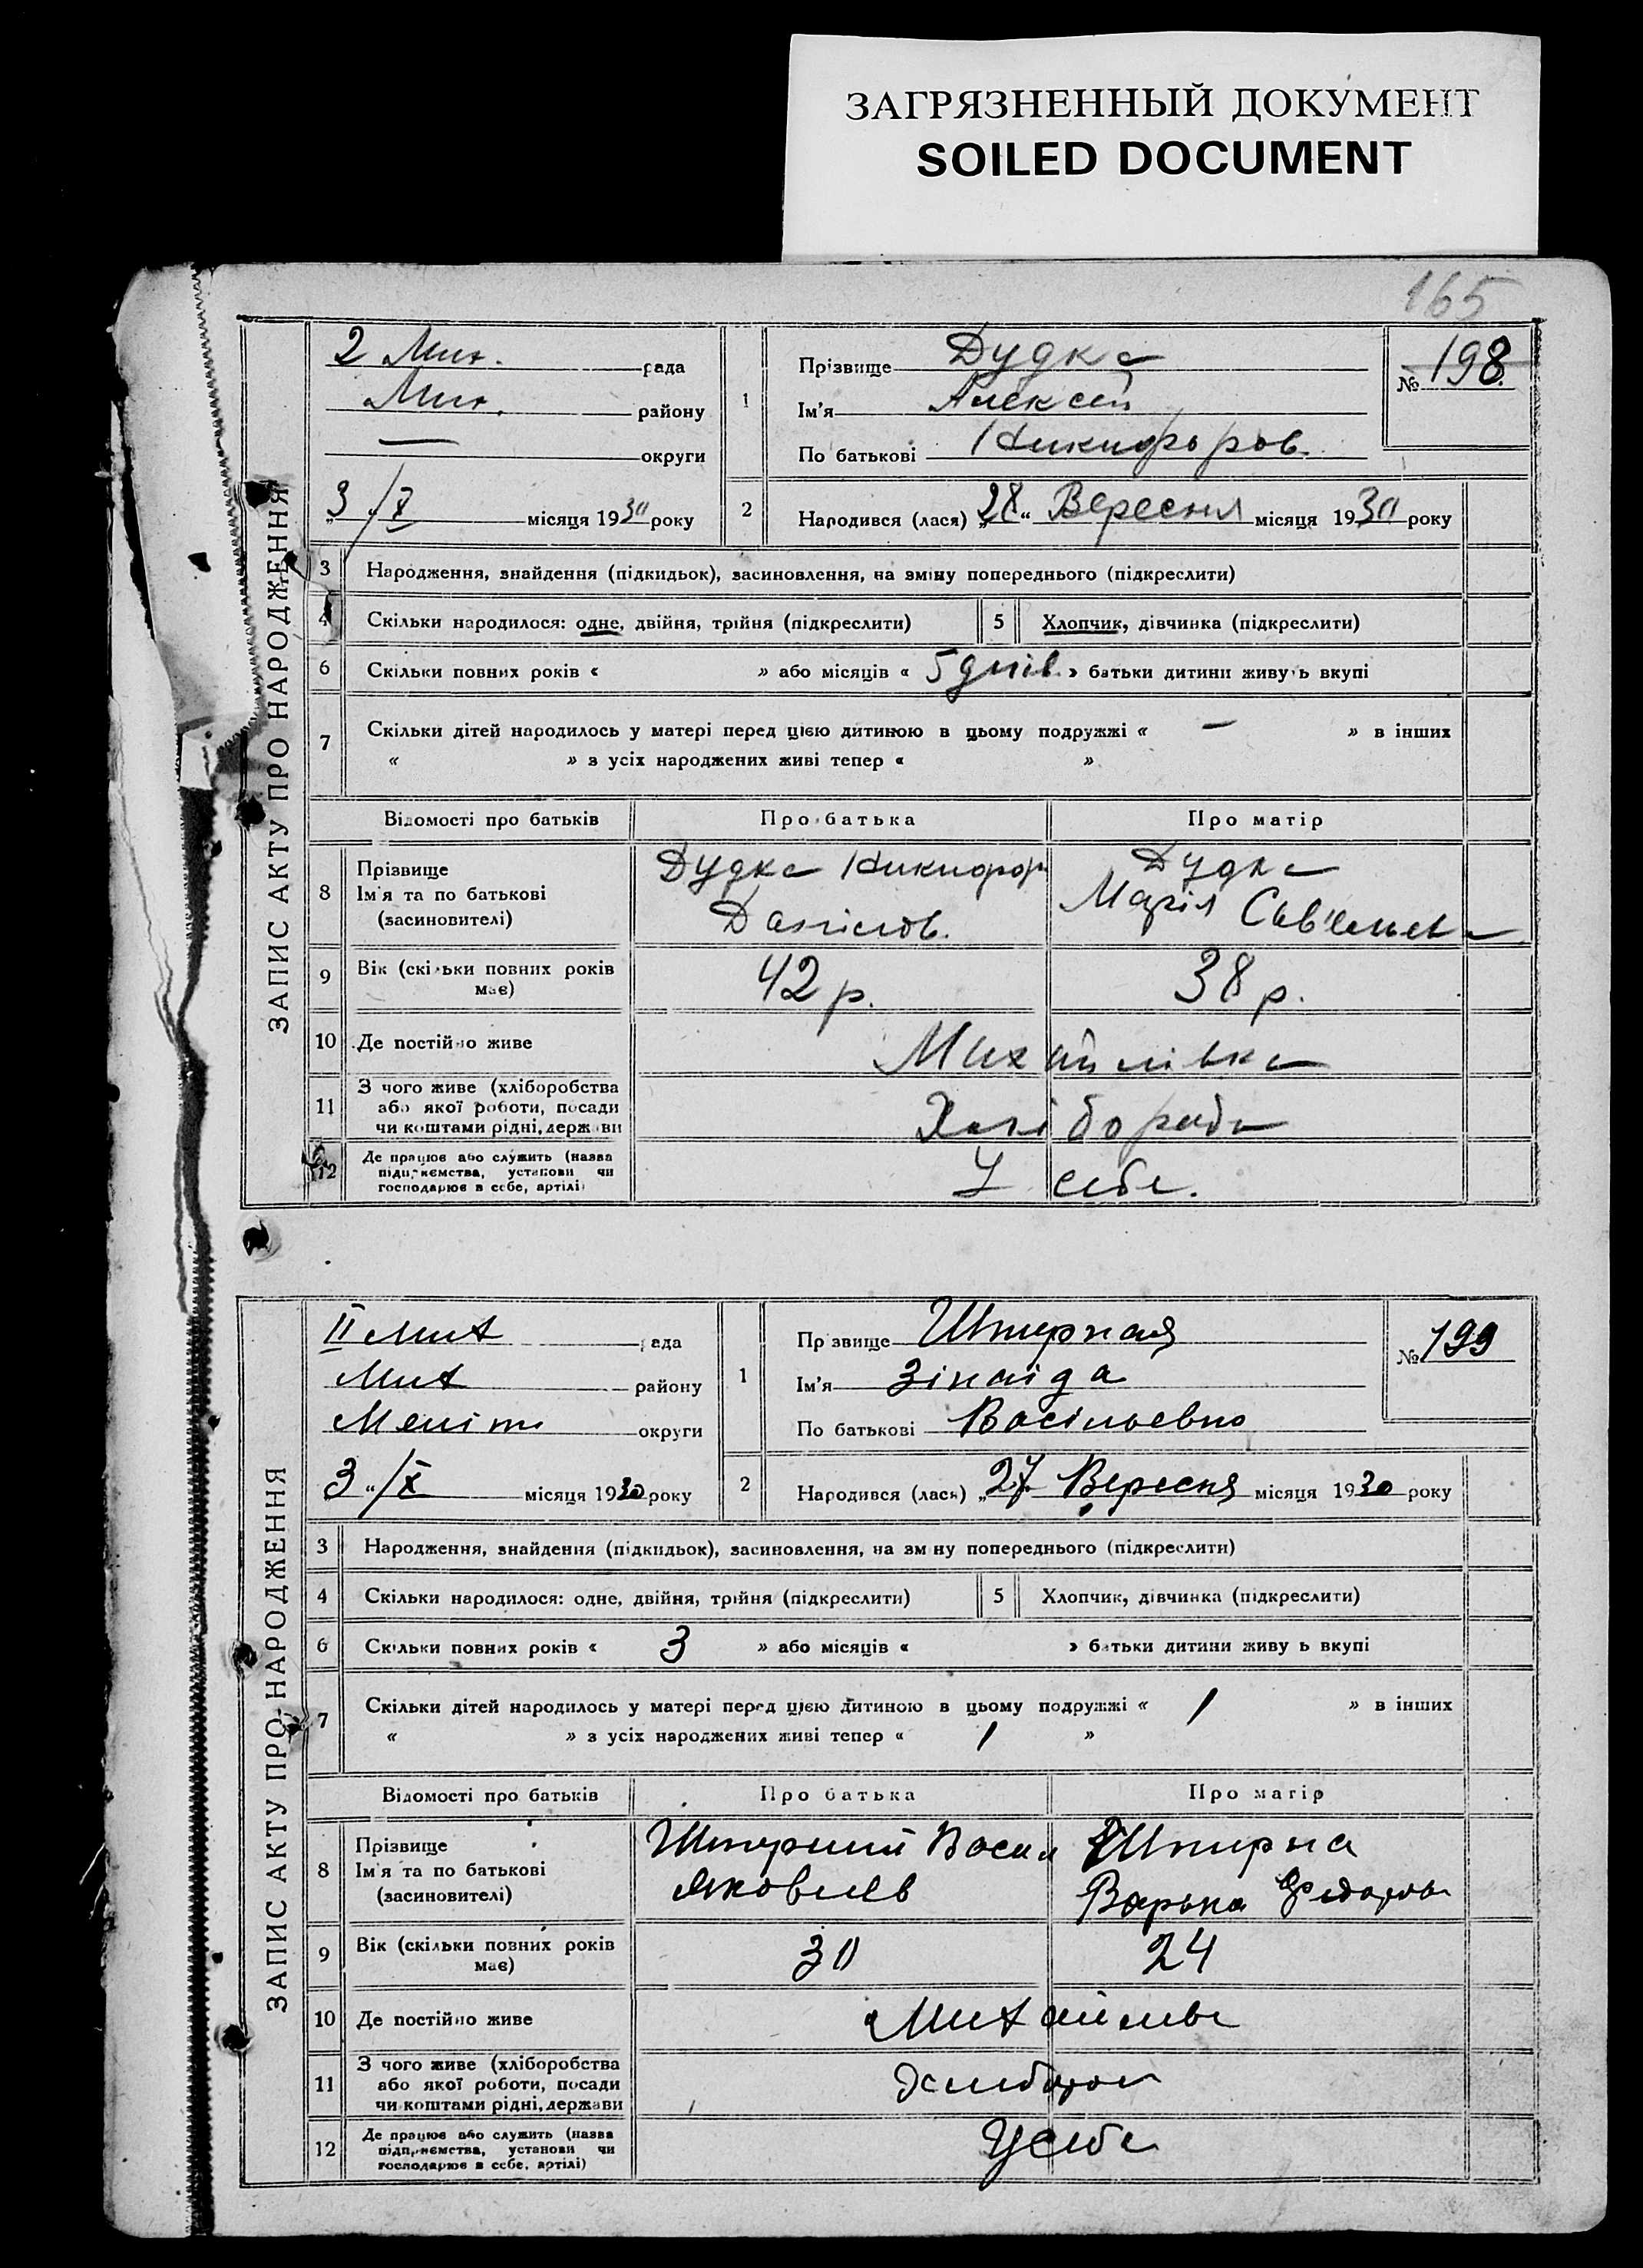 ЗАГРЯЗНЕННЫЙ ДОКУМЕНТ
SOILED DOCUMENT
165
ЗАПИС АКТУ ПРО НАРОДЖЕННЯ
2 Мих. рада
Мих. району
— округи
3/X місяця 1930 року
1
Прізвище Дудка
Ім'я Алексей
По батькові Никифоров.
№ 198
2
Народився (лася) „28“ Вересня місяця 1930 року
3 Народження, знайдення (підкидьок), засиновлення, на зміну попереднього (підкреслити)
4 Скільки народилося: одне, двійня, трійня (підкреслити) 5 Хлопчик, дівчинка (підкреслити)
6 Скільки повних років « » або місяців « 5 днів » батьки дитини живуть вкупі
7 Скільки дітей народилось у матері перед цією дитиною в цьому подружжі « — » в інших
« » з усіх народжених живі тепер « »
Відомості про батьків Про батька Про матір
8 Прізвище
Ім'я та по батькові
(засиновителі)
Дудка Никифор
Данілов.
Дудка
Марія Сав'елиевна
9 Вік (скільки повних років
має)
42 р. 38 р.
10 Де постійно живе Михайлівка
11 З чого живе (хліборобства
або якої роботи, посади
чи коштами рідні, держави
Хлібороби
12 Де працює або служить (назва
підприємства, установи чи
господарює в себе, артілі)
У себе.
ЗАПИС АКТУ ПРО НАРОДЖЕННЯ
II Мих рада
Мих району
Меліт округи
3 “/X місяця 1930 року
1
Прізвище Шпирная
Ім'я Зінаіда
По батькові Васільевна
№ 199
2
Народився (лася) „27 Вересня місяця 1930 року
3 Народження, знайдення (підкидьок), засиновлення, на зміну попереднього (підкреслити)
4 Скільки народилося: одне, двійня, трійня (підкреслити) 5 Хлопчик, дівчинка (підкреслити)
6 Скільки повних років « 3 » або місяців « » батьки дитини живуть вкупі
7 Скільки дітей народилось у матері перед цією дитиною в цьому подружжі « 1 » в інших
« » з усіх народжених живі тепер « 1 »
Відомості про батьків Про батька Про матір
8 Прізвище
Ім'я та по батькові
(засиновителі)
Шпирний Васил
Яковлев
Шпирна
Варька Федоров
9 Вік (скільки повних років
має)
30 24
10 Де постійно живе Михайлівк
11 З чого живе (хліборобства
або якої роботи, посади
чи коштами рідні, держави
12 Де працює або служить (назва
підприємства, установи чи
господарює в себе, артілі)
У себе